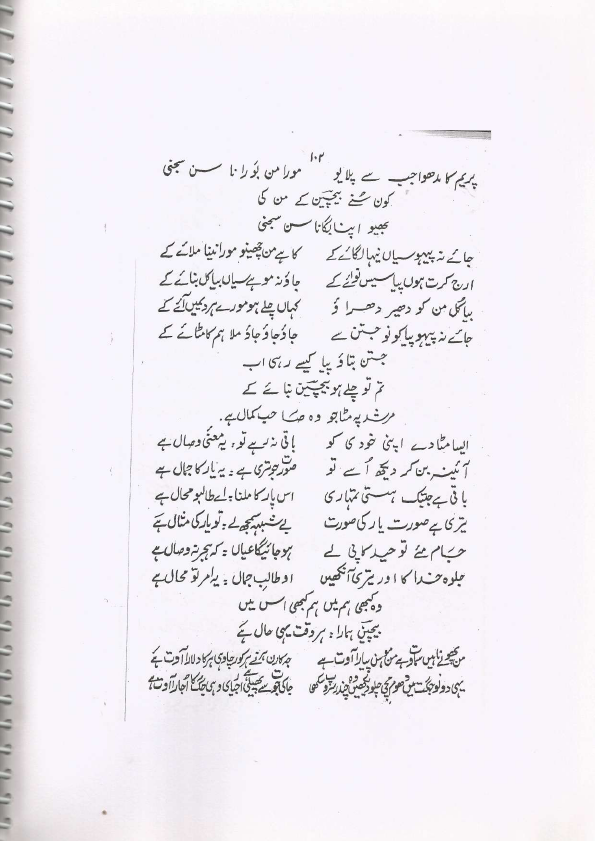 ۱۰۲
پریم کا مدھوا جب سے پلایو مورا من بَورانا سن سجنی
کون سُنے بیچین کے من کی
بھیو اپنا بگانا سن سجنی
جائے نہ پیہو سیاں نیہا لگائے کے کاہے من چھینو مورا نینا ملائے کے
ارج کرت ہوں پیا سیس نوائے کے جاؤ نہ موہے سیاں بیاکل بنائے کے
بیاکل من کو دھیر دھراؤ کہاں چلے ہو مورے ہردے میں آئے کے
جائے نہ پیہو پیا کونو جتن سے جاؤ جاؤ جاؤ ملا ہم کا مٹائے کے
جتن بتاؤ پیا کیسے رہی اب
تم تو چلے ہو بیچین بنائے کے
مرشد پہ مٹا جو وہ صاحب کمال ہے۔
ایسا مٹا دے اپنی خودی کو باقی نہ رہے تو، یہ معنیٔ وصال ہے
آئینہ بن کر دیکھ اُسے تو صورت جو تری ہے، یہ یار کا جمال ہے
باقی ہے جبتک ہستی تمہاری اس یار کا ملنا، اے طالبو محال ہے
تیری ہے صورت یار کی صورت بے شبہہ سمجھ لے، تو یار کی مثال ہے
جام مئے توحید کا پی لے ہو جائیگا عیاں، کہ ہجر نہ وصال ہے
جلوہ خدا کا اور تیری آنکھیں او طالبِ جمال، یہ امر تو محال ہے
وہ کبھی ہم میں ہم کبھی اس میں
بیچین ہمارا، ہر وقت یہی حال ہے
من پھولے ناہیں سماوت ہے من موہن پیارا آوت ہے جہ کارن بھئے ہر کور چاوی ہر کا دلارا آوت ہے
یہی دونو جگت میں دھوم مچی چلو دیکھیں وہ چندر سروپ سکھی جاکی جوت سے پھیلی ہے اُجیاری وہی جگ کا اُجارا آوت ہے